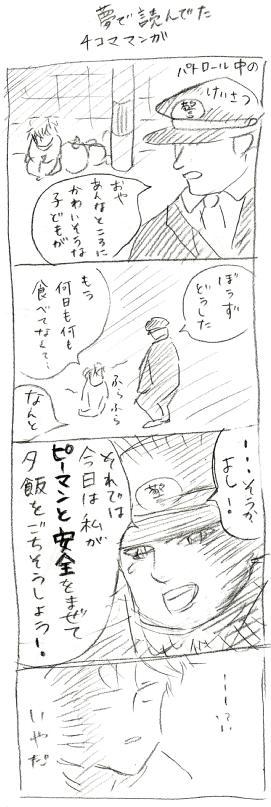 夢で読んでた
4コママンガ
パトロール中の
けいさつ
警
おや
あんなところに
かわいそうな
子どもが
ぼうず
どうした
もう
何日も何も
食べてなくて…
ふらふら
なんと
…そうか
よし!
警
それでは
今日は私が
ピーマンと安全をまぜて
夕飯をごちそうしよう!
……い
いやだ